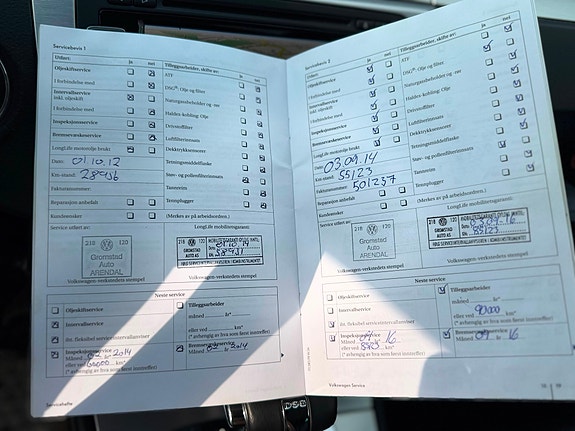 Servicebevis 1
Utført:
ja
nei
Tilleggsarbeider, skifte av:
ja
nei
Oljeskiftservice
ATF
I forbindelse med
DSG® Olje og filter
Intervallservice
inkl. oljeskift
Naturgassbeholder og -rør
I forbindelse med
Haldex-kobling: Olje
Inspeksjonsservice
Drivstoffilter
Bremsevæskeservice
Luftfilterinnsats
LongLife motorolje brukt
Dekktrykksensorer
Dato: 01.10.12
Tetningsmiddelflaske
Km-stand: 28936
Støv- og pollenfilterinnsats
Fakturanummer:
Tannreim
Reparasjon anbefalt
Tennplugger
Kundeønsker
(Merkes av på arbeidsordren.)
Service utført av:
LongLife mobilitetsgaranti:
218
120
Grimstad
Auto
ARENDAL
218 120
GRIMSTAD
AUTO AS
Volkswagen-verkstedets stempel
Volkswagen-verkstedets stempel
Neste service
Oljeskiftservice
Tilleggsarbeider:
Intervallservice
måned
år
iht. fleksibel serviceintervallavviser
eller ved
km*
(* avhengig av hva som først inntreffer)
Inspeksjonsservice
Bremsevæskeservice
Måned
år 2014
Måned
år 2014
eller ved 60000 km*
Servicehefte
Servicebevis 2
Utført:
ja
nei
Tilleggsarbeider, skifte av:
ja
nei
Oljeskiftservice
ATF
I forbindelse med
DSG®: Olje og filter
Intervallservice
inkl. oljeskift
Naturgassbeholder og -rør
I forbindelse med
Haldex-kobling: Olje
Inspeksjonsservice
Drivstoffilter
Bremsevæskeservice
Luftfilterinnsats
LongLife motorolje brukt
Dekktrykksensorer
Dato: 03.09.14
Tetningsmiddelflaske
Km-stand: 55123
Støv- og pollenfilterinnsats
Fakturanummer: 501237
Tannreim
Reparasjon anbefalt
Tennplugger
Kundeønsker
(Merkes av på arbeidsordren.)
Service utført av:
LongLife mobilitetsgaranti:
218
120
Grimstad
Auto
ARENDAL
218 120
GRIMSTAD
AUTO AS
Volkswagen-verkstedets stempel
Volkswagen-verkstedets stempel
Neste service
Oljeskiftservice
Tilleggsarbeider:
Intervallservice
måned
år
iht. fleksibel serviceintervallavviser
eller ved 90000 km*
(* avhengig av hva som først inntreffer)
Inspeksjonsservice
Bremsevæskeservice
Måned
16
Måned 09 år 16
eller ved
km*
(* avhengig av hva som først inntreffer)
Volkswagen Service
DSG